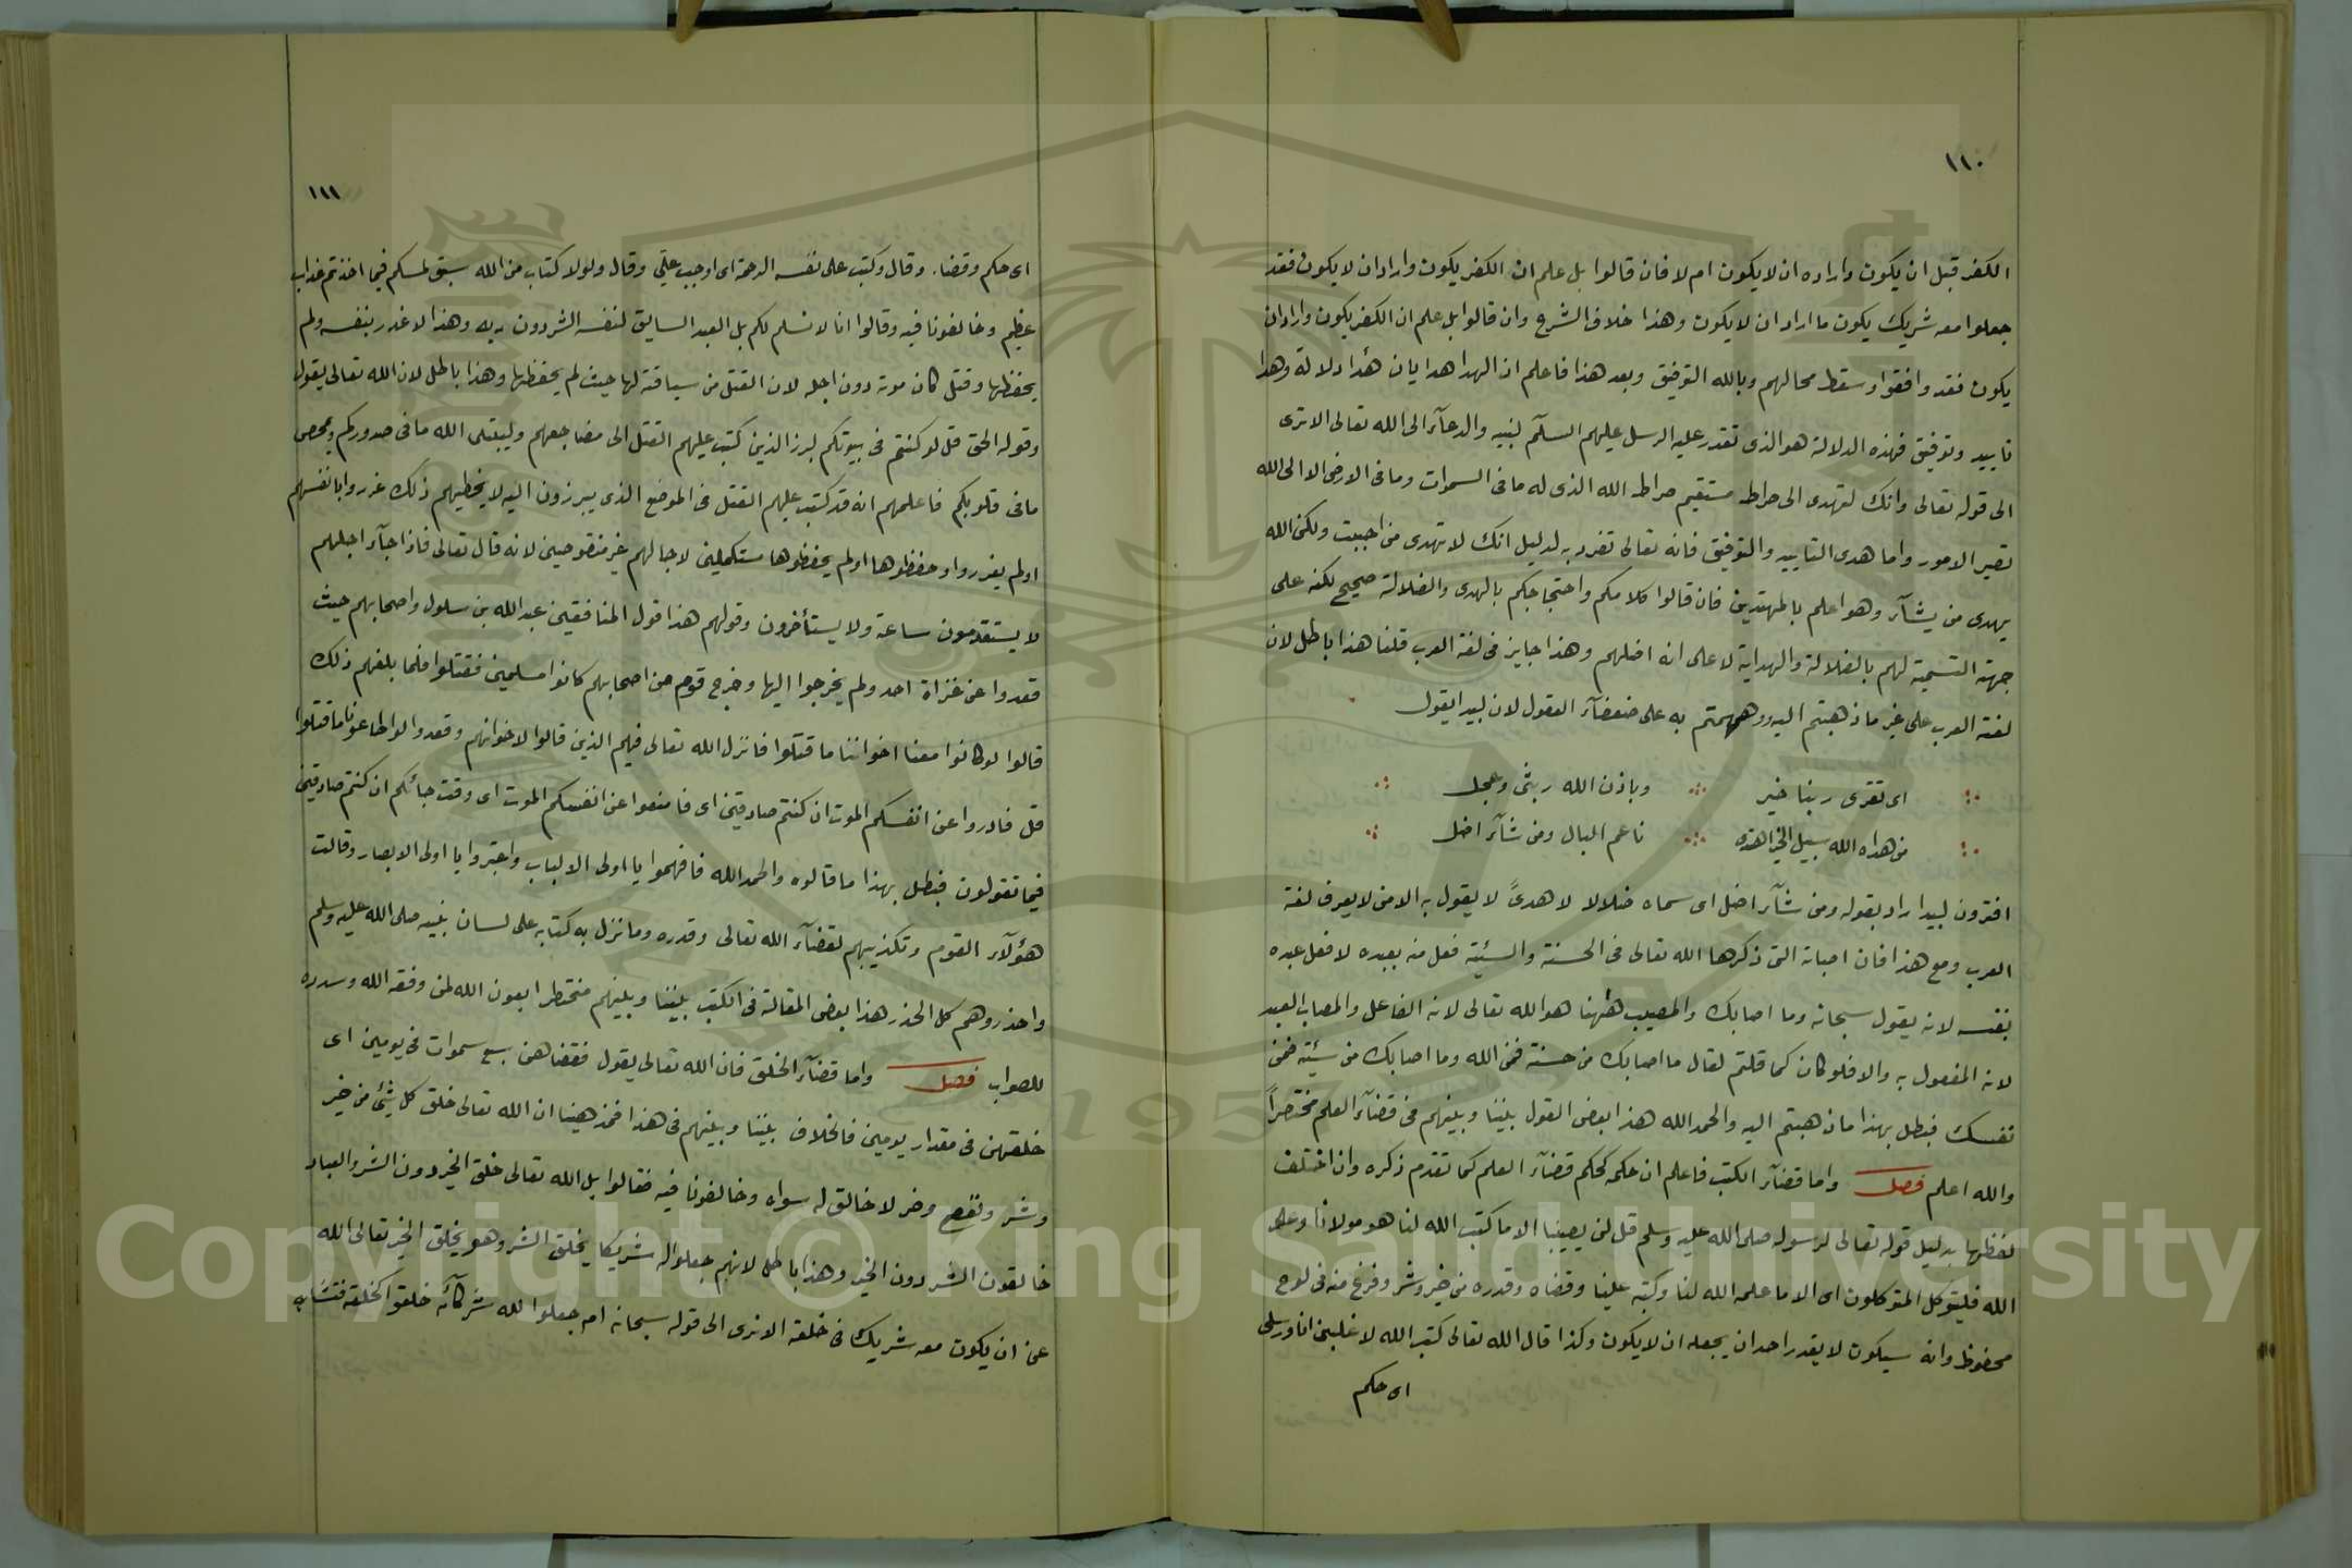 ١١٠
الكفر قبل ان يكون واراده ان لا يكون ام لا فان قالوا بل علم ان الكفر يكون واراد ان لا يكون فقد
جعلوا معه شريك يكون ما اراد ان لا يكون وهذا خلاف الشرع وان قالوا بل علم ان الكفر يكون واراد ان
يكون فقد وافقوا وسقط محالهم وبالله التوفيق وبعد هذا فاعلم ان الهدا هدايان هدا دلالة وهدا
تاييد وتوفيق فهذه الدلالة هو الذى تقدر عليه الرسل عليهم السلام لنبيه والدعآء الى الله تعالى الا ترى
الى قوله تعالى وانك لتهدى الى صراط مستقيم صراط الله الذى له ما فى السموات وما فى الارض الا الى الله
تصير الامور واما هدى التاييد والتوفيق فانه تعالى تفرد به لدليل انك لا تهدى من احببت ولكن الله
يهدى من يشآء وهو اعلم بالمهتدين فان قالوا كلامكم واحتجاجكم بالهدى والضلالة صحيح لكنه على
جهة التسمية لهم بالضلالة والهداية لا على انه اضلهم وهذا جايز فى لغة العرب قلنا هذا باطل لان
لغة العرب على غير ما ذهبتم اليه ووهمتم به على ضعفآء العقول لان لبيد ايقول
اى تقرى ربنا خير وباذن الله ريثى وعجل
من هداه الله سبيل الخير اهتدى ناعم البال ومن شآء اضل
افترون لبيد اراد بقوله ومن شآء اضل اى سماه ضلالا لا هدىً لا يقول به الا من لا يعرف لغة
العرب ومع هذا فان اصابة التى ذكرها الله تعالى فى الحسنة والسيئة فعل منه بعبده لا فعل عبده
بنفسه لانه يقول سبحانه وما اصابك والمصيب ههنا هو الله تعالى لانه الفاعل والمصاب العبد
لانه المفعول به والا فلو كان كما قلتم لقال ما اصابك من حسنة فمن الله وما اصابك من سيئة فمن
نفسك فبطل بهذا ما ذهبتم اليه والحمد الله هذا بعض القول بيننا وبينهم فى قضآء العلم مختصراً
والله اعلم فصل واما قضآء الكتب فاعلم ان حكمه كحكم قضآء العلم كما تقدم ذكره وان اختلف
لفظها بدليل قوله تعالى لرسوله صلى الله عليه وسلم قل لن يصيبنا الا ما كتب الله لنا هو مولانا وعلى
الله فليتوكل المتوكلون اى الا ما علمه الله لنا وكتبه علينا وقضاه وقدره من خير وشر وفرغ منه فى لوح
محفوظ وانه سيكون لا يقدر احد ان يجعله ان لا يكون وكذا قال الله تعالى كتب الله لاغلبن انا ورسلى
اى حكم
١١١
اى حكم وقضا. وقال وكتب على نفسه الرحمة اى اوجب على وقال ولولا كتاب من الله سبق لمسكم فيما اخذتم عذاب
عظيم وخالفونا فيه وقالوا انا لا نسلم لكم بل العبد السايق لنفسه الشر دون ربه وهذا لا غدر بنفسه ولم
يحفظها وقتل كان موته دون اجله لان القتل من سياقته لها حيث لم يحفظها وهذا باطل لان الله تعالى يقول
وقوله الحق قل لو كنتم فى بيوتكم لبرز الذين كتب عليهم القتل الى مضاجعهم وليبتلى الله ما فى صدوركم وليمحص
ما فى قلوبكم فاعلمهم انه قد كتب عليهم القتل فى الموضع الذى يبرزون اليه لا يخطيهم ذلك غرروا بانفسهم
او لم يغرروا وحفظوها او لم يحفظوها مستكملين لاجالهم غير منقوصين لانه قال تعالى فاذا جآء اجلهم
لا يستقدمون ساعة ولا يستأخرون وقولهم هذا قول المنافقين عبد الله بن سلول واصحابهم حيث
قعدوا عن غزاة احد ولم يخرجوا اليها وخرج قوم من اصحابهم كانوا مسلمين فقتلوا فلما بلغهم ذلك
قالوا لو كانوا معنا اخواننا ما قتلوا فانزل الله تعالى فيهم الذين قالوا لاخوانهم وقعدوا لو اطاعونا ما قتلوا
قل فادروا عن انفسكم الموت ان كنتم صادقين اى فامنعوا عن انفسكم الموت اى وقت جائكم ان كنتم صادقين
فيما تقولون فبطل بهذا ما قالوه والحمد الله فافهموا يا اولى الالباب واعتبروا يا اولى الابصار وقالت
هؤلآء القوم وتكذيبهم لقضآء الله تعالى وقدره وما نزل به كتابه على لسان نبيه صلى الله عليه وسلم
واحذروهم كل الحذر هذا بعض المقالة فى الكتب بيننا وبينهم مختصرا بعون الله لمن وفقه الله وسدده
للصواب فصل واما قضآء الخلق فان الله تعالى يقول فقضاهن سبع سموات فى يومين اى
خلقهن فى مقدار يومين فالخلاف بيننا وبينهم فى هذا فمذهبنا ان الله تعالى خلق كل شئ من خير
وشر ونفع وضر لا خالق له سواه وخالفونا فيه فقالوا بل الله تعالى خلق الخير دون الشر والعباد
خالقون الشر دون الخير وهذا باطل لانهم جعلوا له شريكا يخلق الشر وهو يخلق الخير تعالى الله
عن ان يكون معه شريك فى خلقه الا ترى الى قوله سبحانه ام جعلوا لله شركآء خلقوا كخلقه فتشابه
Copyright © King Saud University